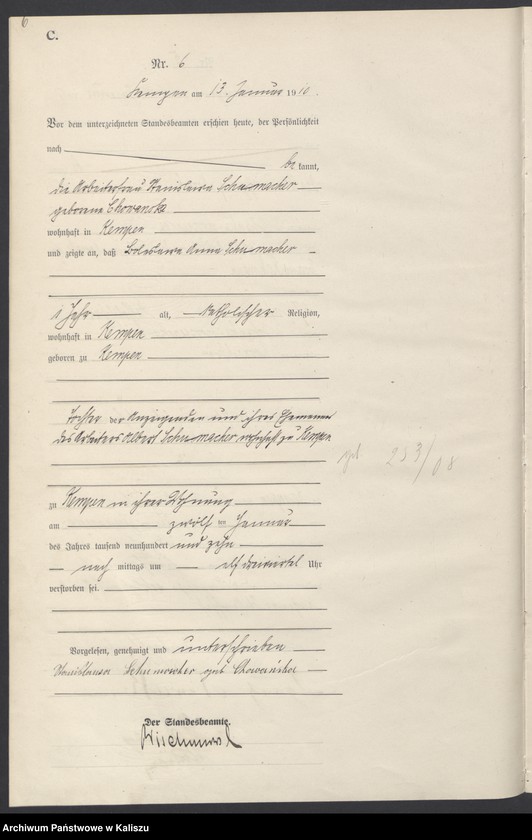 6
C.
Nr. 6
Kempen am 13. Januar 1910.
Vor dem unterzeichneten Standesbeamten erschien heute, der Persönlichkeit
nach bekannt,
die Arbeiterfrau Stanislawa Schumacher
geborene Chowanska
wohnhaft in Kempen
und zeigte an, daß Boleslawa Anna Schumacher
1 Jahr alt, katholischer Religion,
wohnhaft in Kempen
geboren zu Kempen
Tochter der Anzeigenden und ihres Ehemannes
des Arbeiters Albert Schumacher wohnhaft zu Kempen
geb 253/08
zu Kempen in ihrer Wohnung
am zwölften Januar
des Jahres tausend neunhundert und zehn
nach mittags um elf dreiviertel Uhr
verstorben sei.
Vorgelesen, genehmigt und unterschrieben
Stanislawa Schumacher geb Chowańska
Der Standesbeamte.
Archiwum Państwowe w Kaliszu